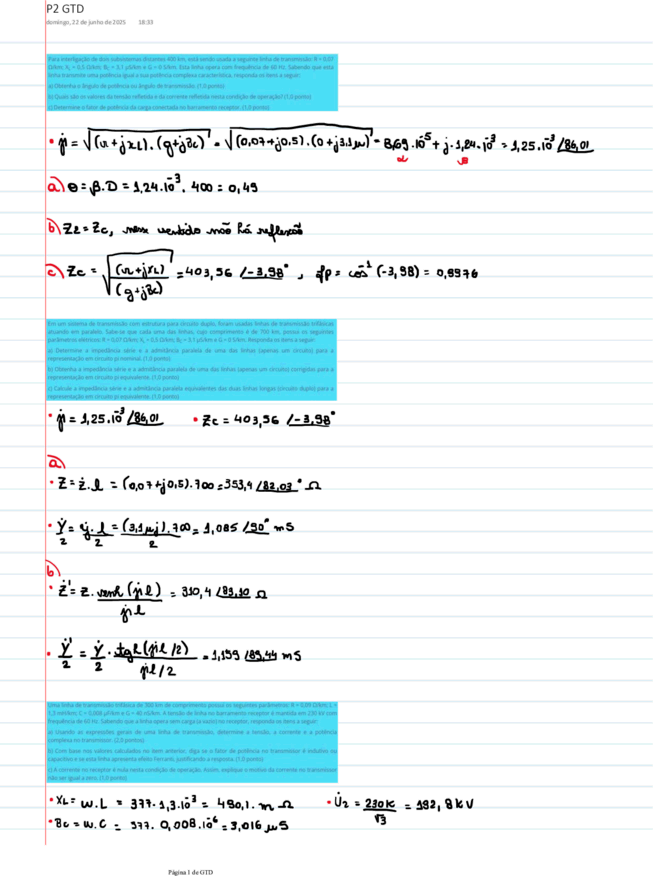 P2 GTD
domingo, 22 de junho de 2025 18:33
Para interligação de dois subsistemas distantes 400 km, está sendo usada a seguinte linha de transmissão: R = 0,07
Ω/km, XL = 0,5 Ω/km, BC = 3,1 µS/km e G = 0 S/km. Esta linha opera com frequência de 60 Hz. Sabendo que esta
linha transmite uma potência igual a sua potência complexa característica, responda os itens a seguir:
a) Obtenha o ângulo de potência ou ângulo de transmissão. (1,0 ponto)
b) Quais são os valores da tensão refletida e da corrente refletida nesta condição de operação? (1,0 ponto)
c) Determine o fator de potência da carga conectada no barramento receptor. (1,0 ponto)
• γ̇ = √(r+jxL).(g+jBc) = √(0,07+j0,5).(0+j3,1µ) = 8,69.10⁻⁵ + j.1,24.10⁻³ = 1,25.10⁻³ /86,01
α β
a) θ = β.D = 1,24.10⁻³. 400 = 0,49
b) Z2 = Zc, nesse sentido não há reflexão
c) Zc = √(r+jxL)/(g+jBc) = 403,56 /-3,98° , fp = cos⁻¹(-3,98) = 0,9976
Em um sistema de transmissão com estrutura para circuito duplo, foram usadas linhas de transmissão trifásicas
atuando em paralelo. Sabe-se que cada uma das linhas, cujo comprimento é de 700 km, possui os seguintes
parâmetros elétricos: R = 0,07 Ω/km; XL = 0,5 Ω/km; BC = 3,1 µS/km e G = 0 S/km. Responda os itens a seguir:
a) Determine a impedância série e a admitância paralela de uma das linhas (apenas um circuito) para a
representação em circuito pi nominal. (1,0 ponto)
b) Obtenha a impedância série e a admitância paralela de uma das linhas (apenas um circuito) corrigidos para a
representação em circuito pi equivalente. (1,0 ponto)
c) Calcule a impedância série e a admitância paralela equivalentes das duas linhas longas (circuito duplo) para a
representação em circuito pi equivalente. (1,0 ponto)
• γ̇ = 1,25.10⁻³ /86,01 • Zc = 403,56 /-3,98°
a)
• Z = ż.l = (0,07+j0,5).700 = 353,4 /82,03° Ω
• Ẏ/2 = ẏ.l/2 = (3,1µj).700/2 = 1,085 /90° mS
b)
• Ż' = Z. senh(γ̇l)/γ̇l = 310,4 /83,10 Ω
• Ẏ'/2 = Ẏ/2 . tgh(γ̇l/2)/γ̇l/2 = 1,159 /89,44 mS
Uma linha de transmissão trifásica de 350 km de comprimento possui os seguintes parâmetros: R = 0,09 Ω/km; L =
1,3 mH/km; C = 0,008 µF/km e G = 40 nS/km. A tensão de linha no barramento receptor é mantida em 230 kV com
frequência de 60 Hz. Sabendo que a linha opera sem carga (a vazio) no receptor, responda os itens a seguir:
a) Usando as expressões gerais de uma linha de transmissão, determine a tensão, a corrente e a potência
complexa no transmissor. (2,0 pontos)
b) Com base nos valores calculados no item anterior, diga se o fator de potência no transmissor é indutivo ou
capacitivo e se esta linha apresenta efeito Ferranti, justificando a resposta. (1,0 ponto)
c) A corrente no receptor é nula nesta condição de operação. Assim, explique o motivo da corrente no transmissor
não ser igual a zero. (1,0 ponto)
• XL = w.L = 377.1,3.10⁻³ = 490,1.m Ω • U̇2 = 230K/√3 = 132,8 kV
• Bc = w.C = 377. 0,008.10⁻⁶ = 3,016 µS
Página 1 de GTD